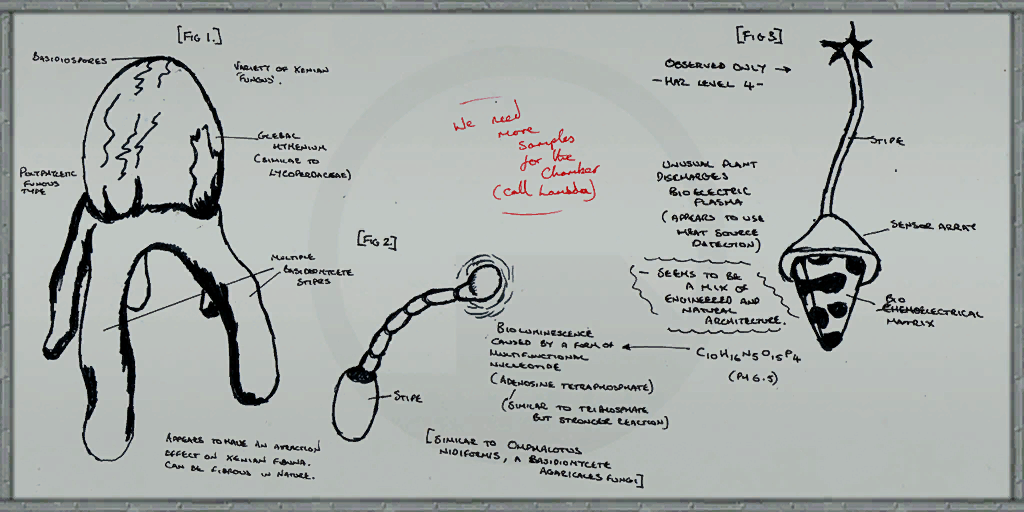 [FIG 1.]
BASIDIOSPORES
VARIETY OF XENIAN
FUNGUS.
GLEBAL
HYHENIUM
(SIMILAR TO
LYCOPERDACEAE)
FUNGUS
TYPE
MULTIPLE
BASIDIOMYCETE
STIPES
APPEARS TO HAVE AN ATRACTION
EFFECT ON XENIAN FUNNA.
CAN BE FIBROUS IN NATURE.
We need
more
samples
for the
Chamber
(call Lambda)
[FIG 2]
STIPE
BIOLUMINESCENCE
CAUSED BY A FORM OF
MULTIFUNCTIONAL
NUCLEOTIDE
(ADENOSINE TETRAPHOSPHATE)
(SIMILAR TO TRIPHOSPHATE
BUT STRONGER REACTION)
C10H16N5O15P4
(PH 6.5)
[SIMILAR TO OMPHALOTUS
NIDIFORMIS, A BASIDIOMYCETE
AGARICALES FUNGI]
[FIG 3]
OBSERVED ONLY
- HAR LEVEL 4 -
STIPE
UNUSUAL PLANT
DISCHARGES
BIOELECTRIC
PLASMA
(APPEARS TO USE
HEAT SOURCE
DETECTION)
SENSOR ARRAY
- SEEMS TO BE
A MIX OF
ENGINEERED AND
NATURAL
ARCHITECTURE.
BIO
CHEMOELECTRICAL
MATRIX